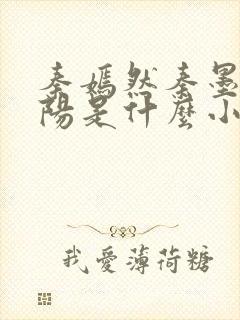 秦嫣然秦墨
陽是什麼小
我愛薄荷糖